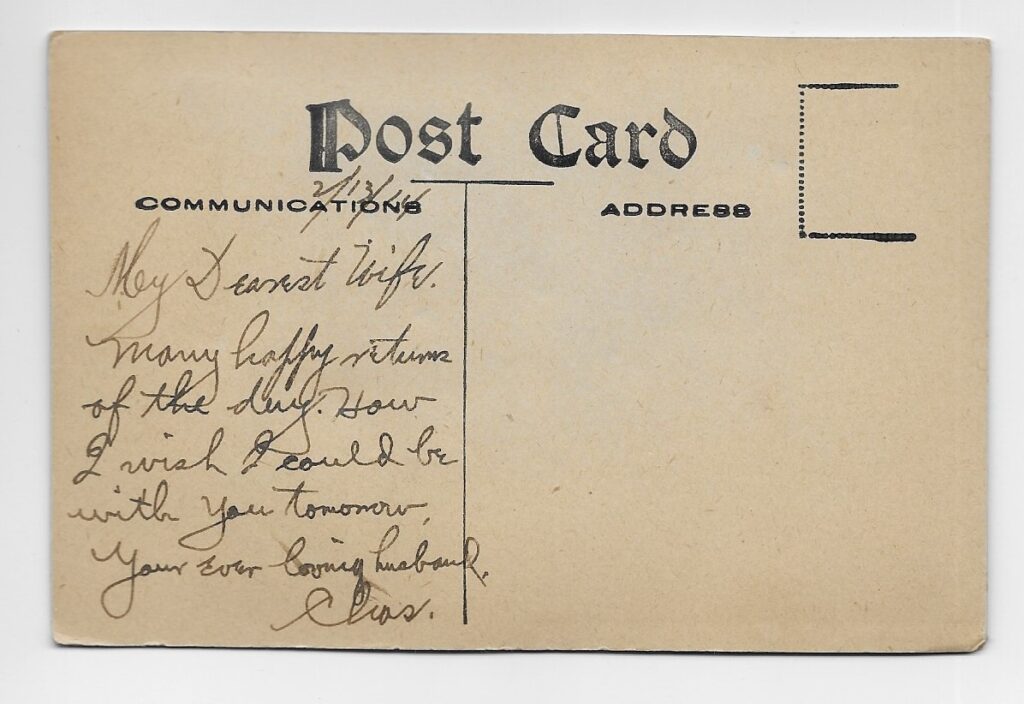 Post Card
2/13/14
COMMUNICATIONS
ADDRESS
My Dearest Wife.
Many happy returns
of the day. How
I wish I could be
with you tomorrow,
Your ever loving husband.
Chas.